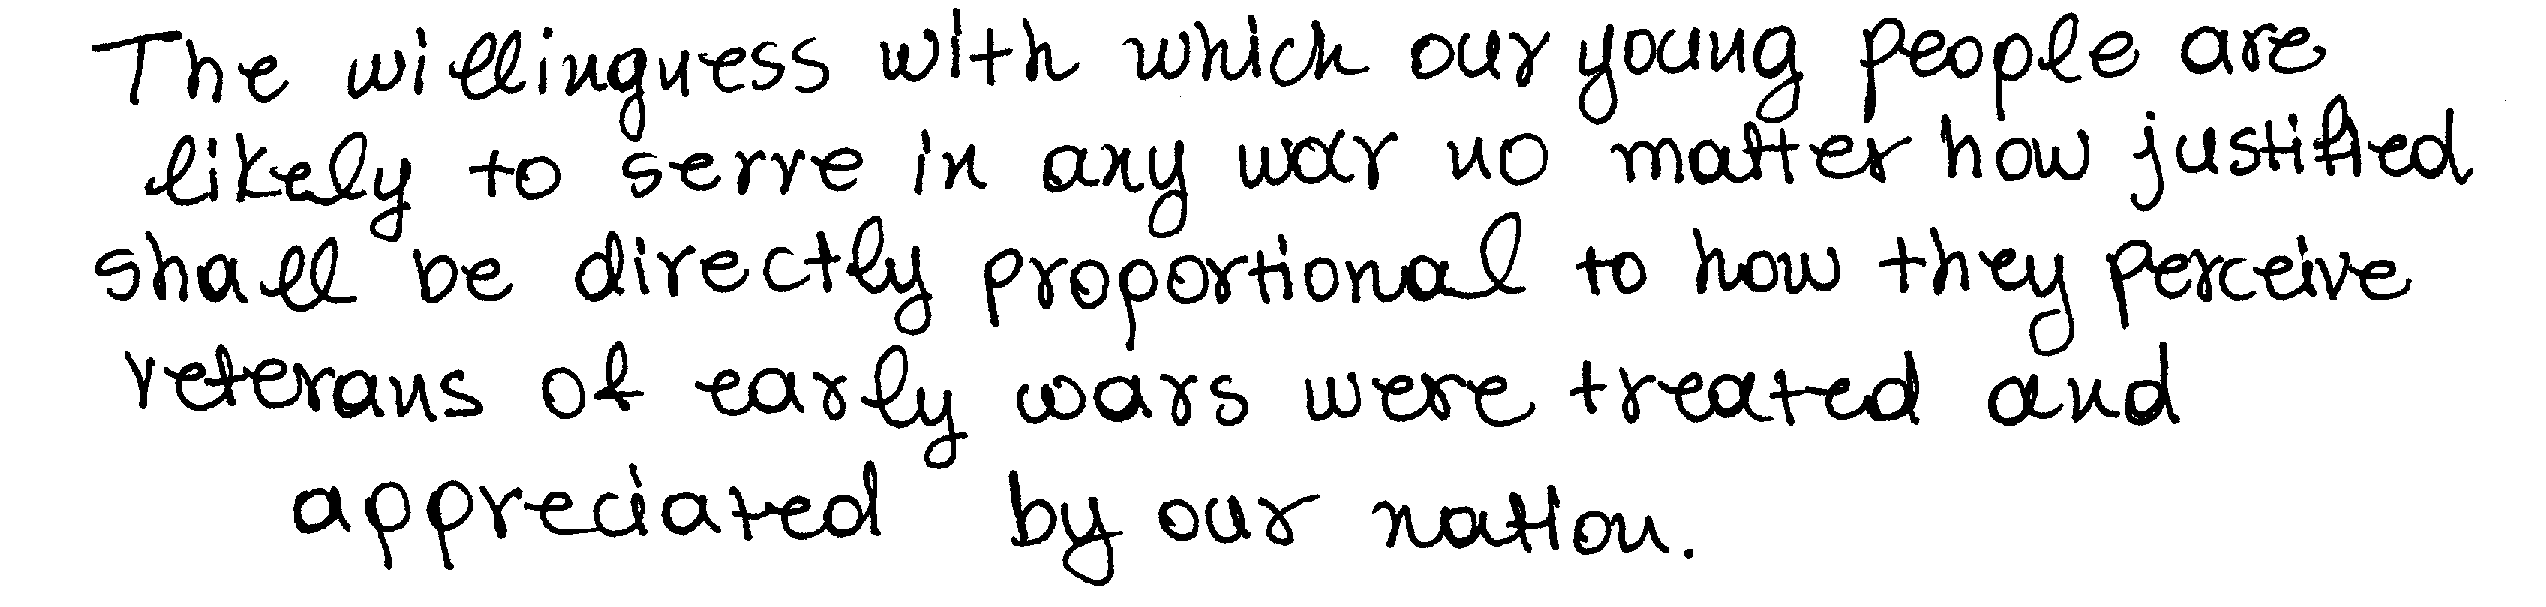 The willingness with which our young people are
likely to serve in any war no matter how justified
shall be directly proportional to how they perceive
veterans of early wars were treated and
appreciated by our nation.